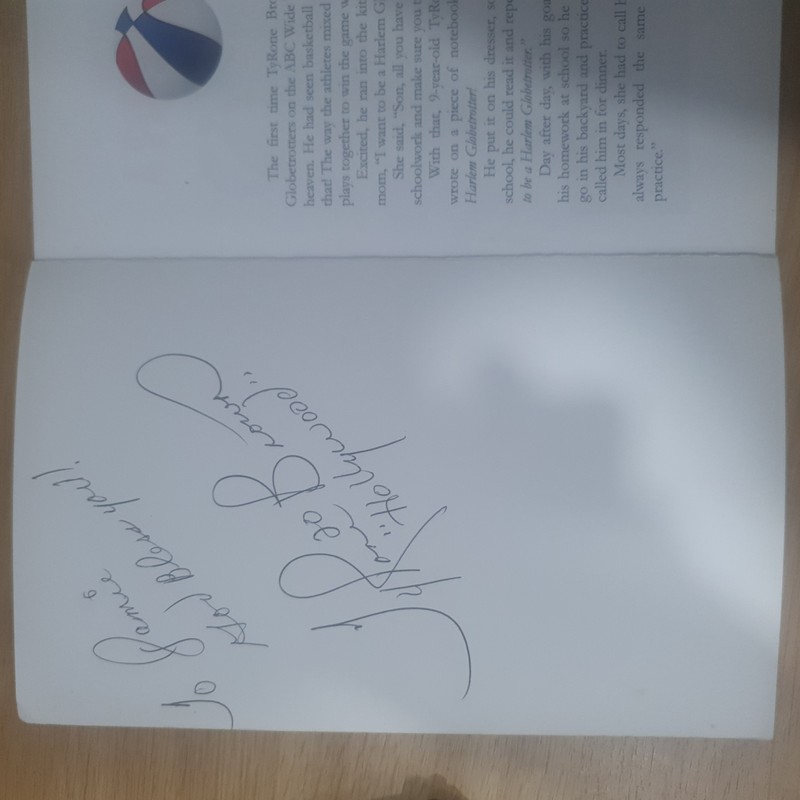 To Jamie
God Bless you!
TyRone Brown
20
"Hollywood"
The first time TyRone Bro
Globetrotters on the ABC Wide
heaven. He had seen basketball
that! The way the athletes mixed
plays together to win the game w
Excited, he ran into the kit
mom, “I want to be a Harlem Gl
She said, “Son, all you have
schoolwork and make sure you t
With that, 9-year-old TyRo
wrote on a piece of notebook
Harlem Globetrotter!
He put it on his dresser, so
school, he could read it and repe
to be a Harlem Globetrotter.”
Day after day, with his goa
his homework at school so he
go in his backyard and practice
called him in for dinner.
Most days, she had to call h
always responded the same
practice.”